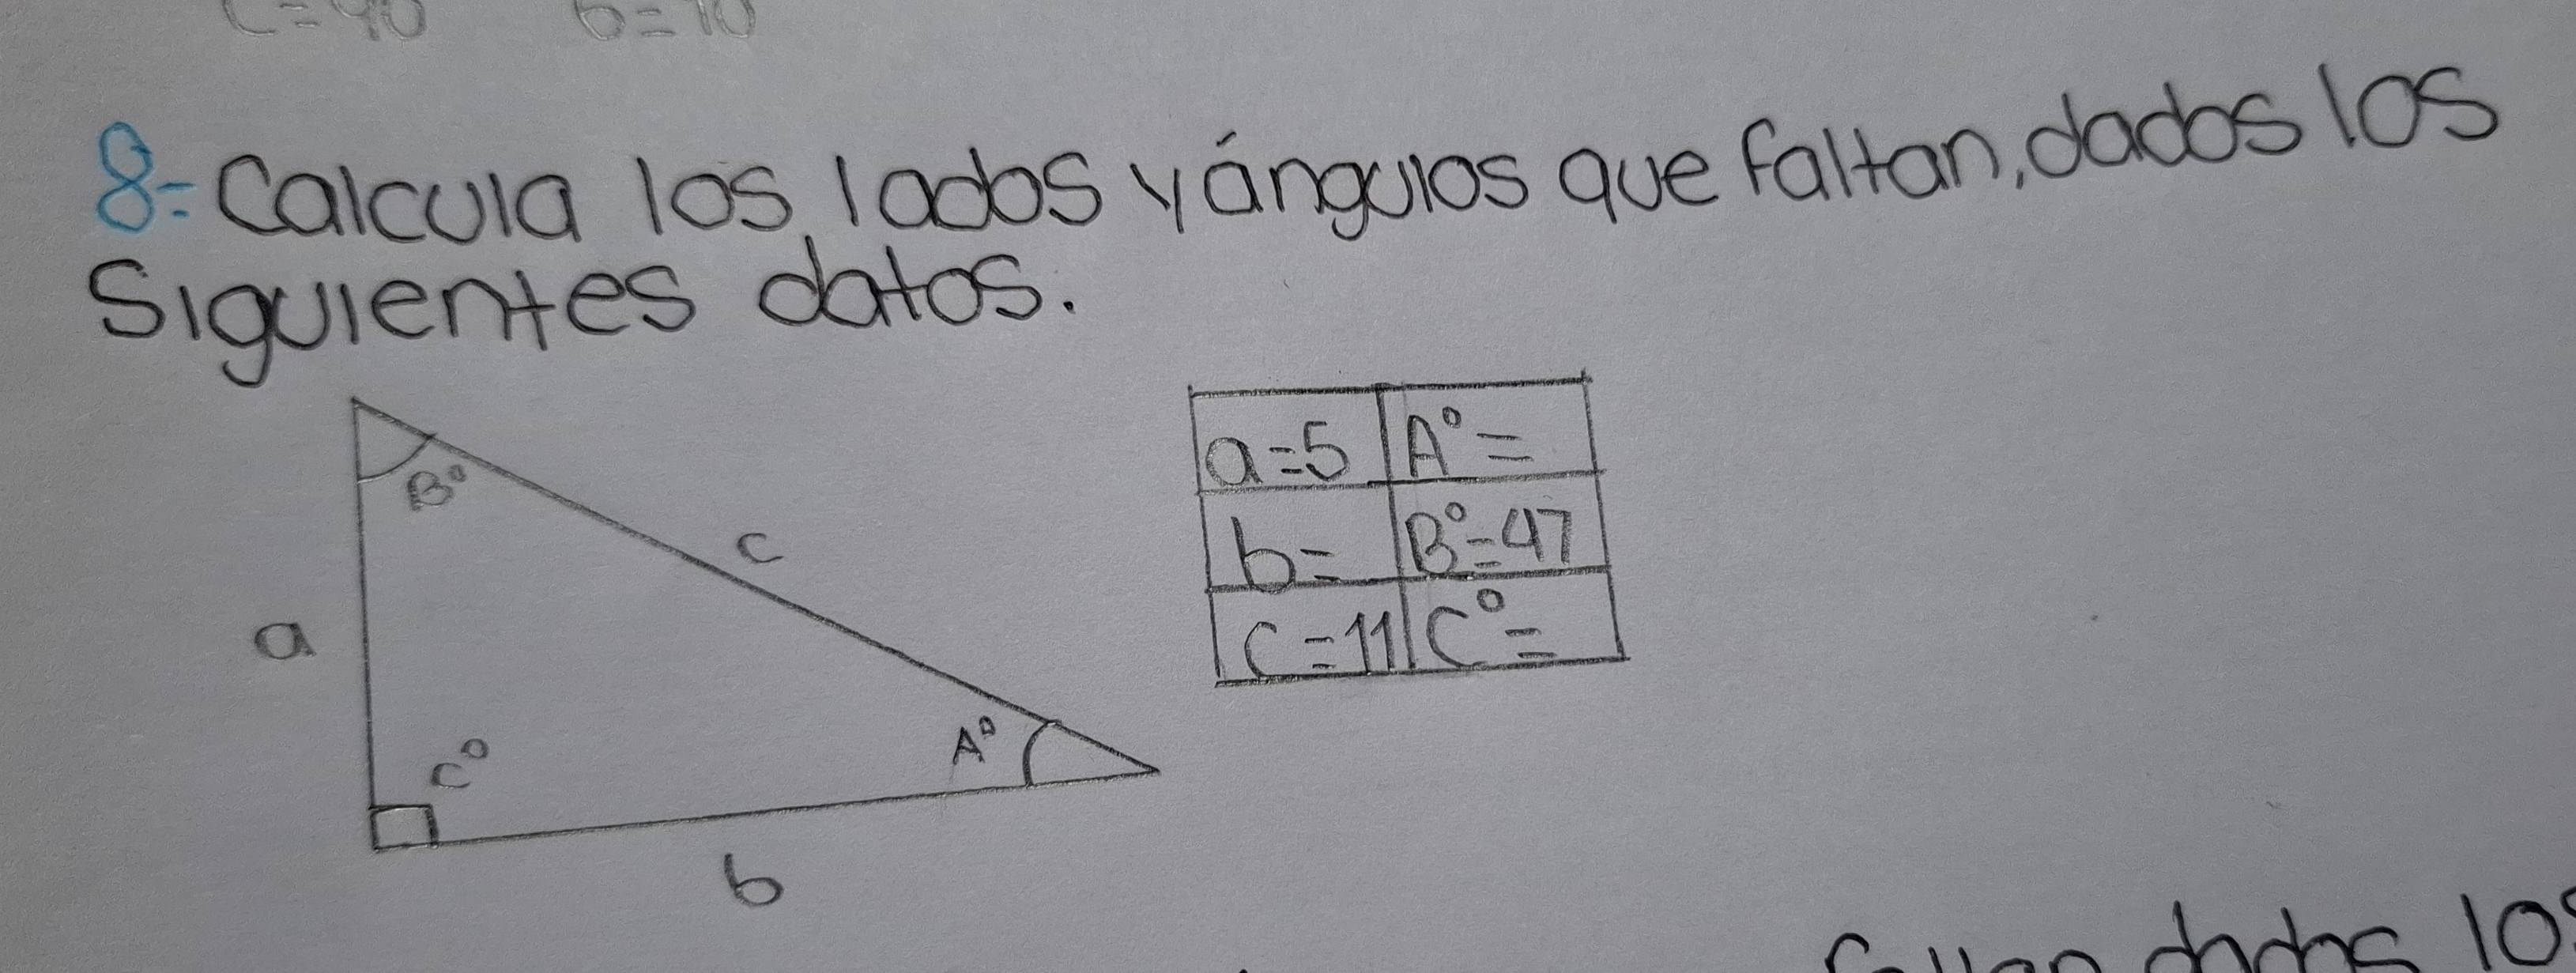 c=90 b=10
8=Calcula los lados y ángulos que faltan, dados los
Siguientes datos.
B°
c
a
C°
A°
b
a=5 A°=
b= B°=47
C=11 C°=
dados los